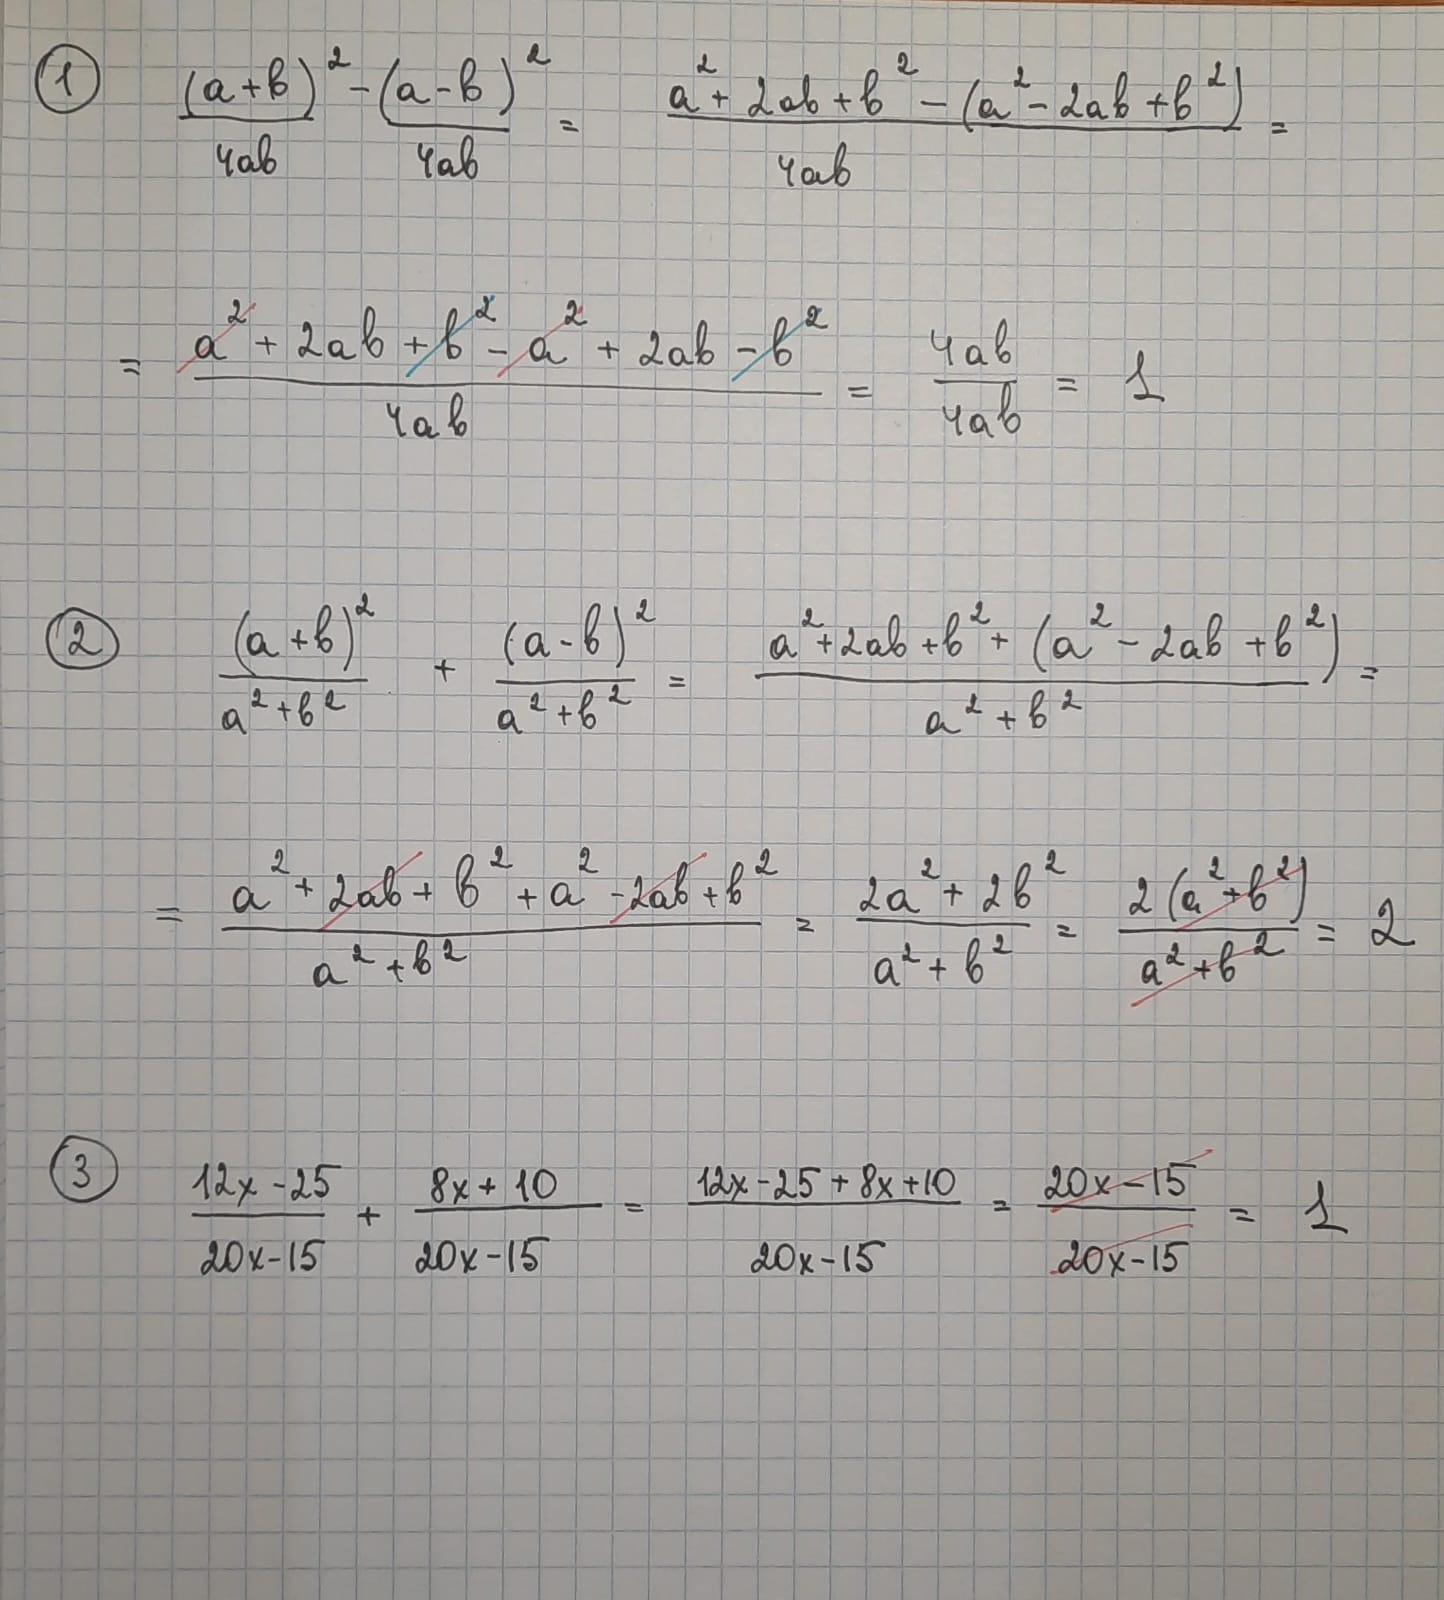 ① (a+b)²/4ab - (a-b)²/4ab = (a²+2ab+b²-(a²-2ab+b²))/4ab =
= (a²+2ab+b²-a²+2ab-b²)/4ab = 4ab/4ab = 1
② (a+b)²/(a²+b²) + (a-b)²/(a²+b²) = (a²+2ab+b²+(a²-2ab+b²))/(a²+b²) =
= (a²+2ab+b²+a²-2ab+b²)/(a²+b²) = (2a²+2b²)/(a²+b²) = 2(a²+b²)/(a²+b²) = 2
③ (12x-25)/(20x-15) + (8x+10)/(20x-15) = (12x-25+8x+10)/(20x-15) = (20x-15)/(20x-15) = 1